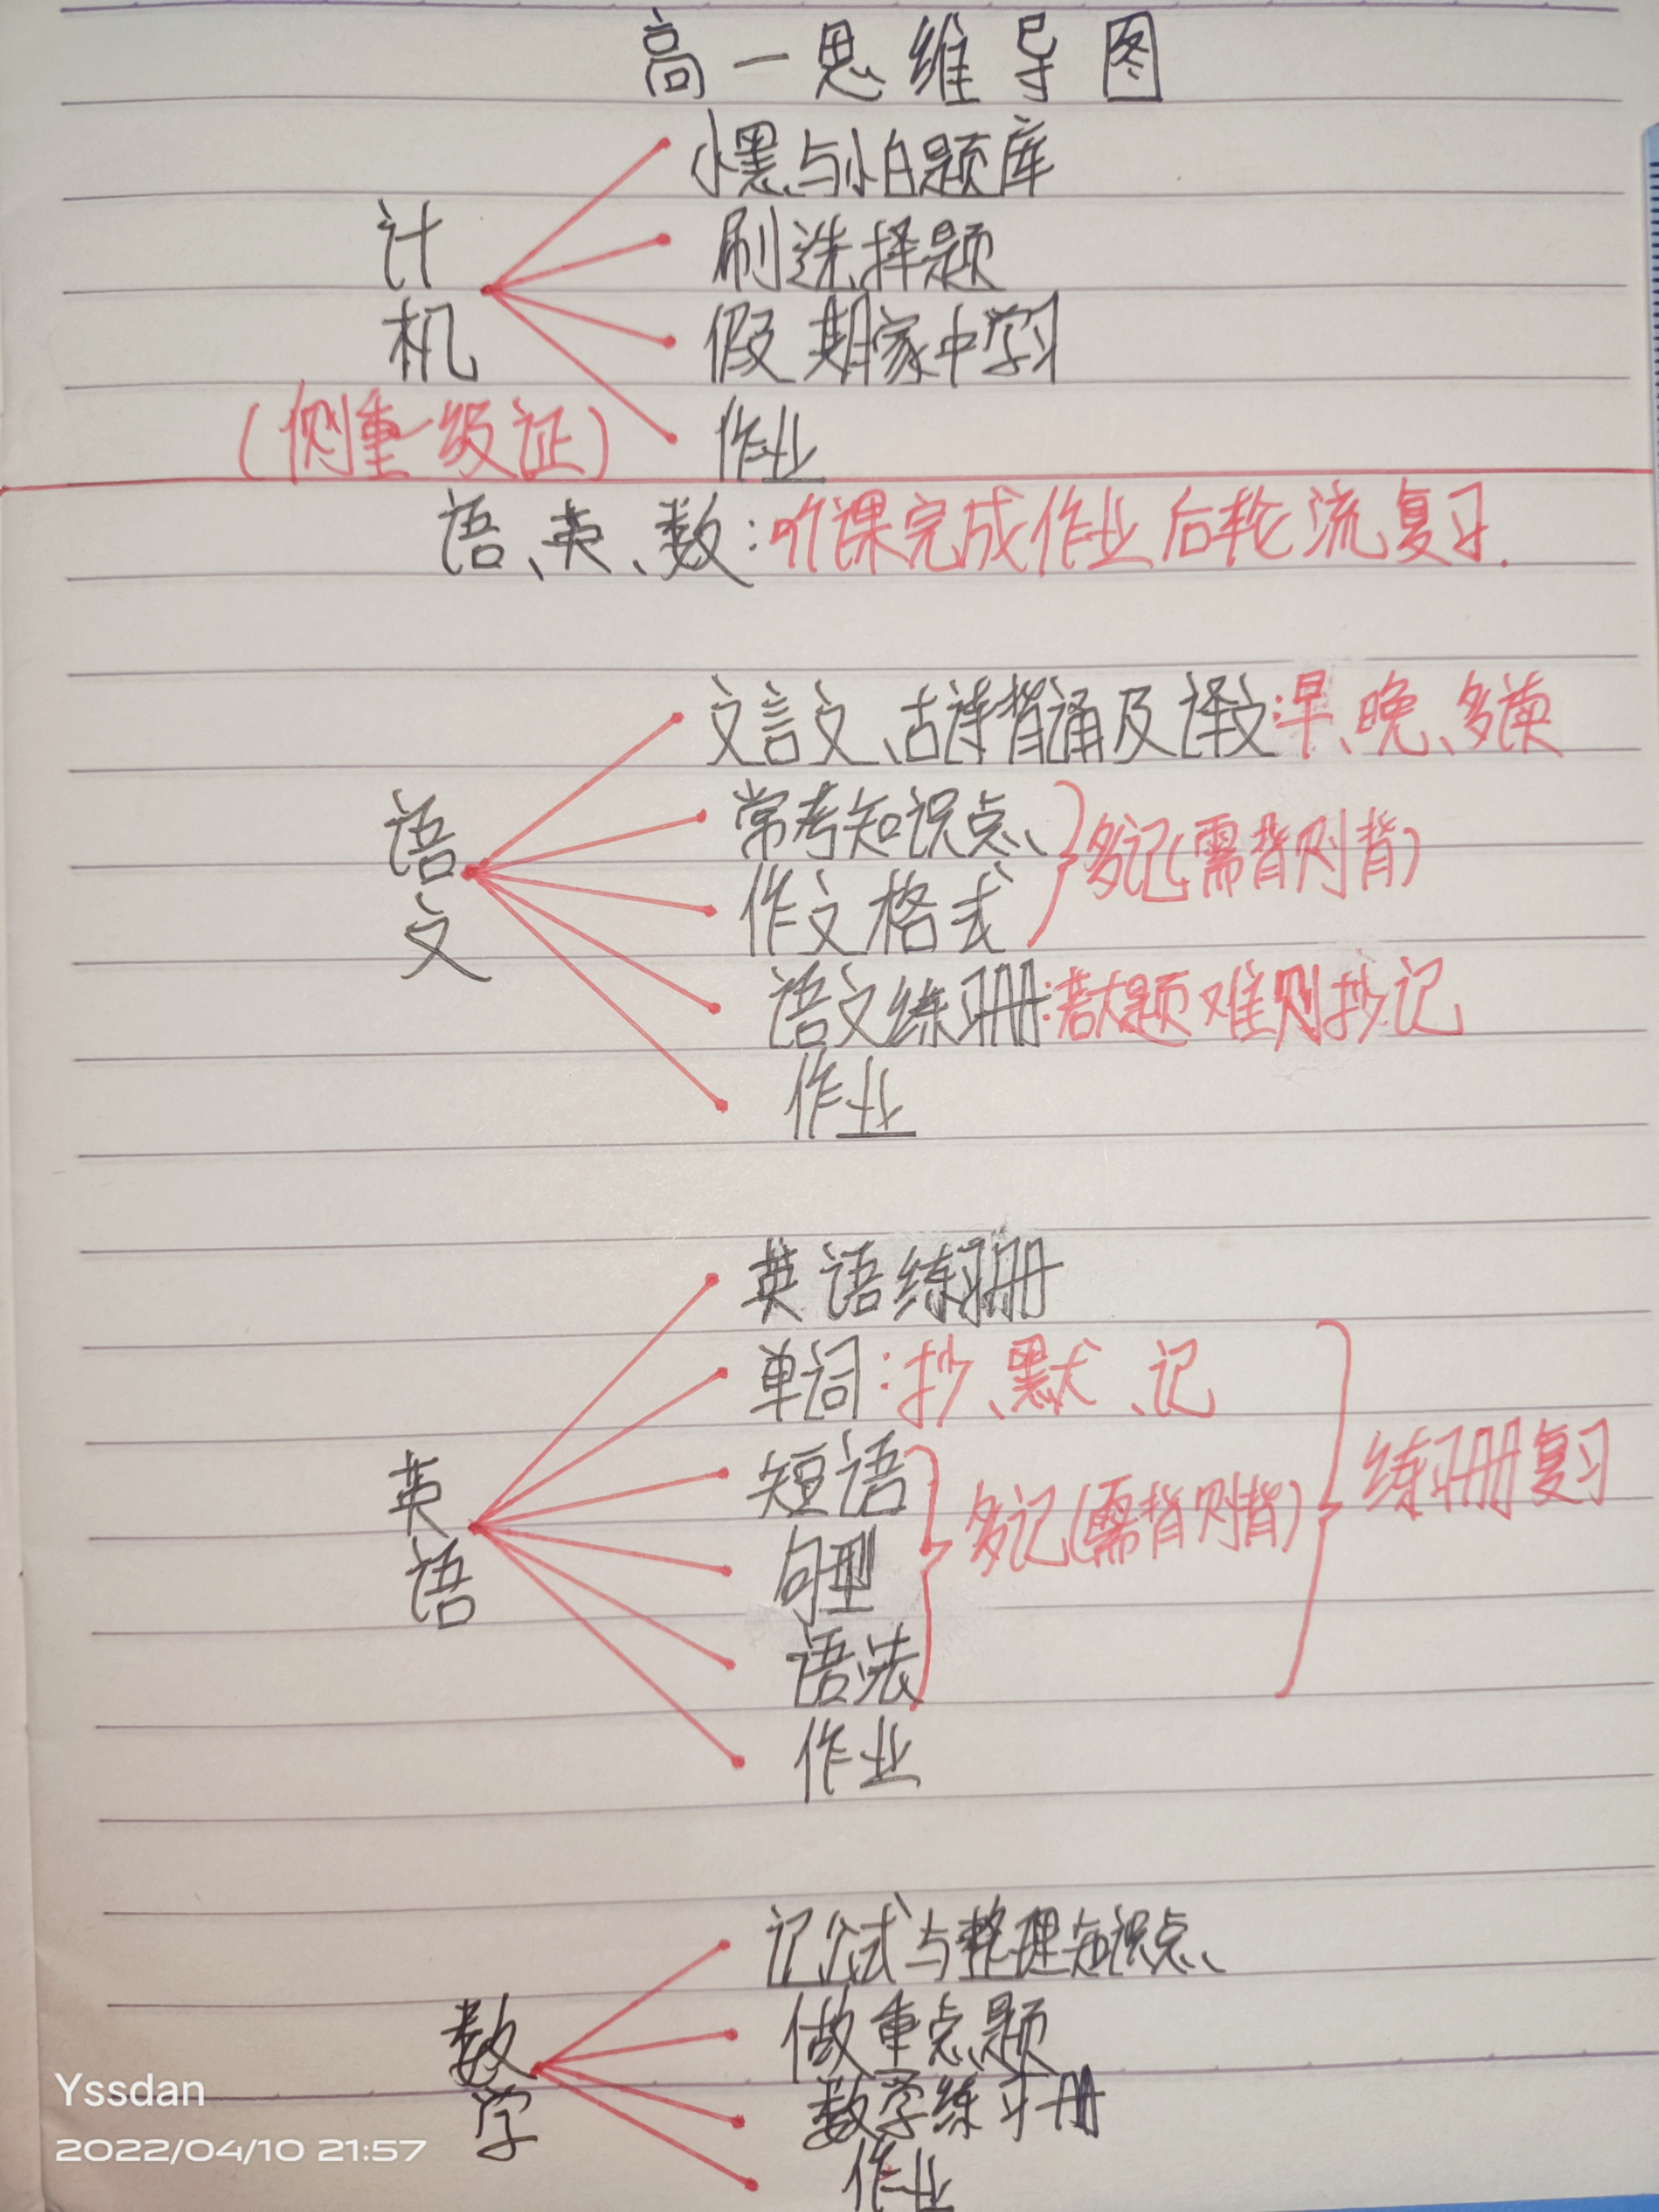 高一思维导图
小黑与小白题库
计机
刷选择题
假期家中学习
(侧重一级证)
作业
语、英、数:听课完成作业后轮流复习.
语文
文言文、古诗背诵及译文:早、晚、多读
常考知识点、
作文格式
多记(需背则背)
语文练习册:若大题难则抄记
作业
英语
英语练习册
单词:抄、默、记
短语
句型
语法
多记(需背则背)
练习册复习
作业
数学
记公式与整理知识点、
做重点题
数学练习册
作业
Yssdan
2022/04/10 21:57